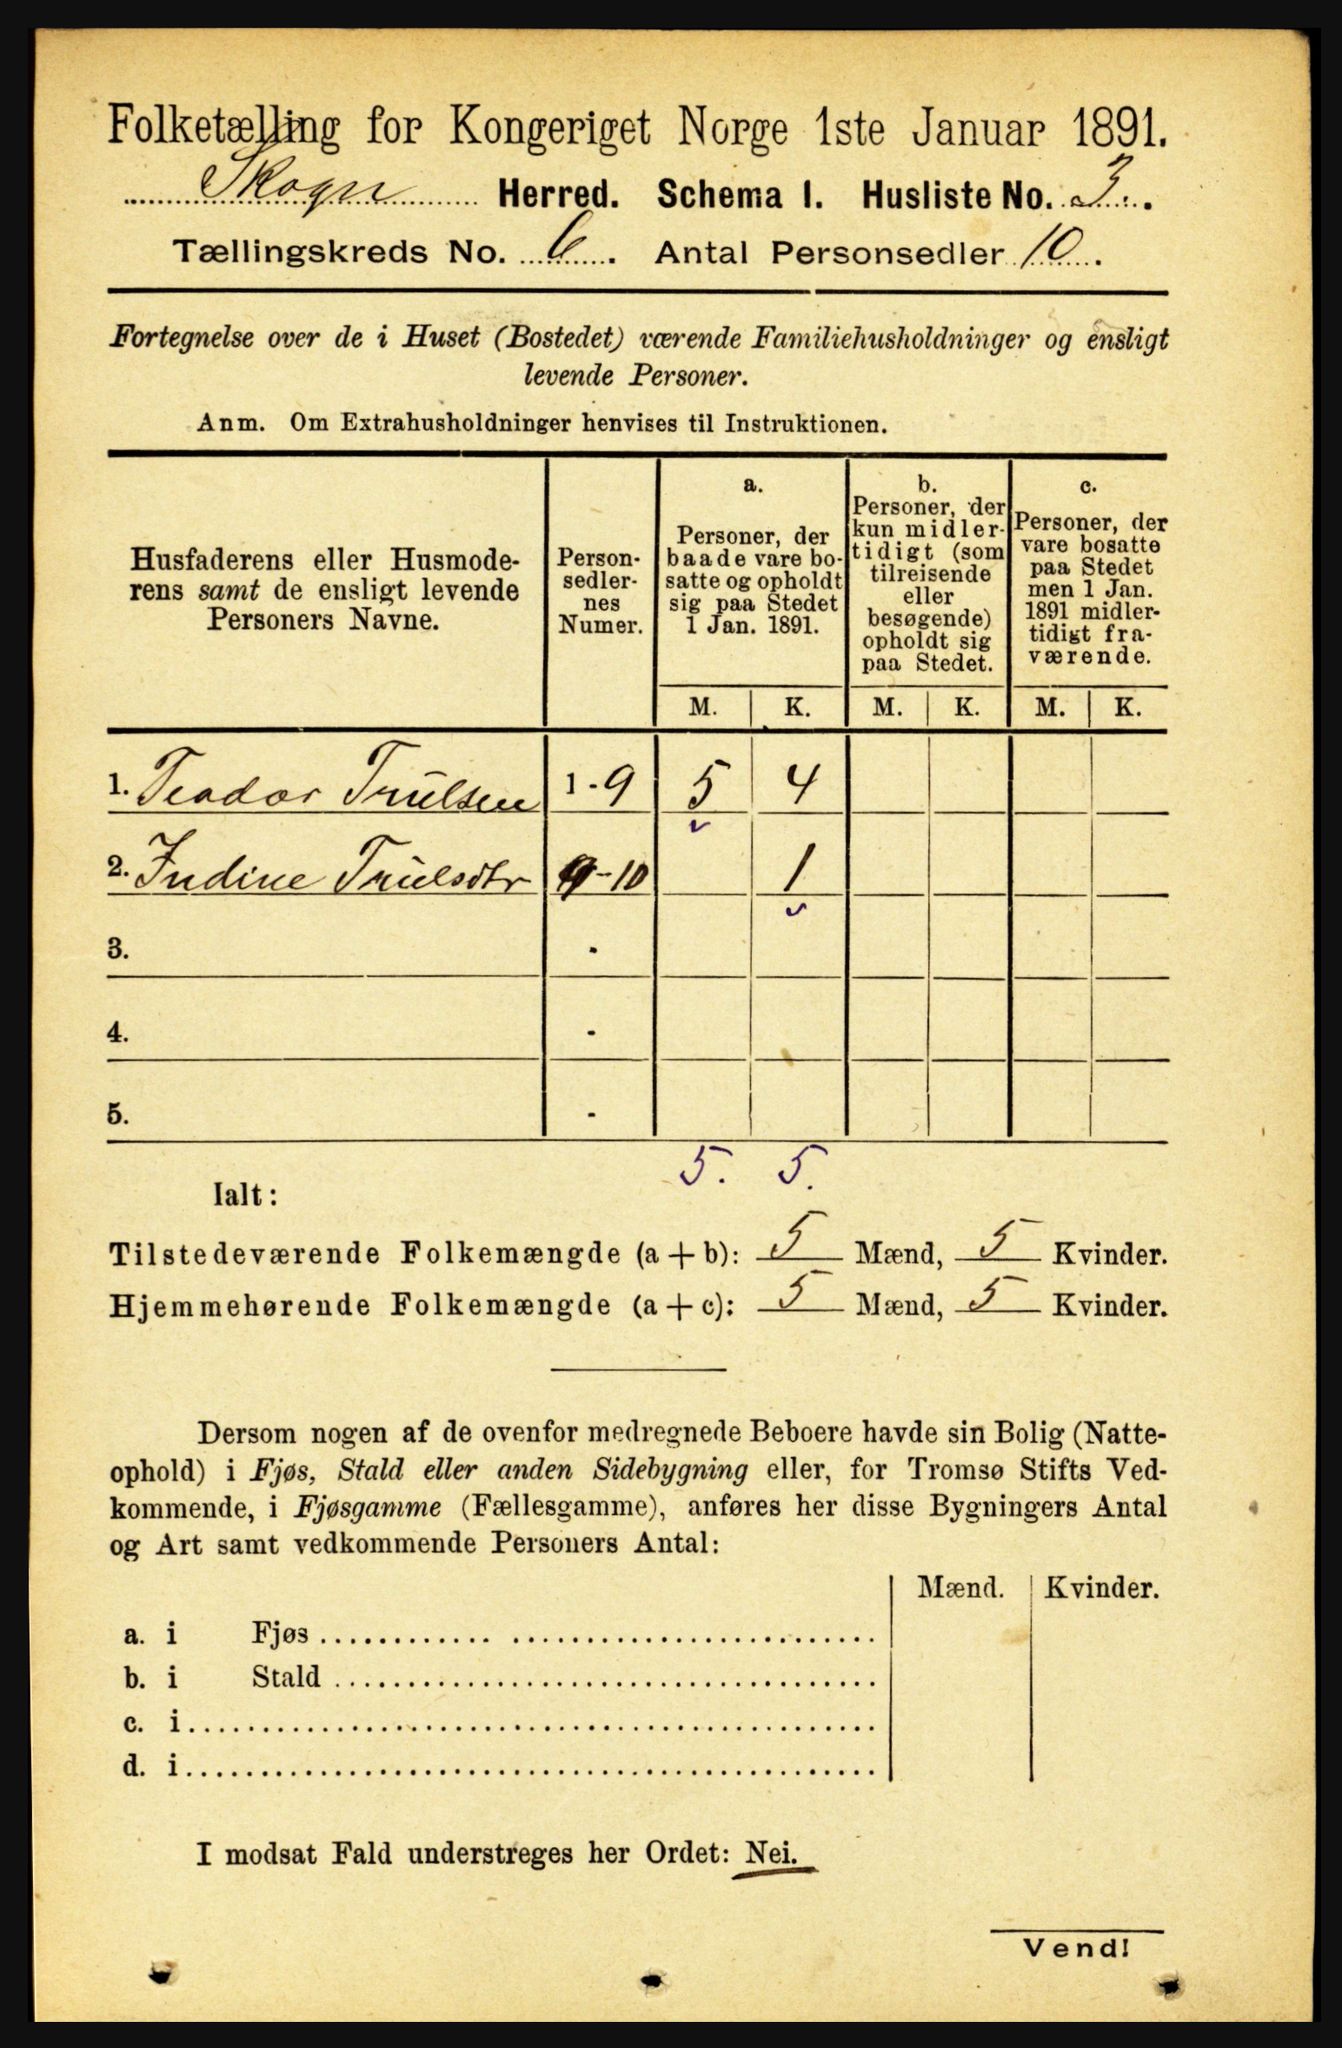 Folketælling for Kongeriget Norge 1ste Januar 1891.
Skogn Herred. Schema 1. Husliste No. 3.
Tællingskreds No. 6. Antal Personsedler 10.
Fortegnelse over de i Huset (Bostedet) værende Familiehusholdninger og ensligt
levende Personer.
Anm. Om Extrahusholdninger henvises til Instruktionen.
Husfaderens eller Husmode-
rens samt de ensligt levende
Personers Navne.
Person-
sedler-
nes
Numer.
a.
Personer, der
baade vare bo-
satte og opholdt
sig paa Stedet
1 Jan. 1891.
b.
Personer, der
kun midler-
tidigt (som
tilreisende
eller
besøgende)
opholdt sig
paa Stedet.
c.
Personer, der
vare bosatte
paa Stedet
men 1 Jan.
1891 midler-
tidigt fra-
værende.
M. K. M. K. M. K.
1. Teodor Trulsen 1-9 5 4
2. Indine Trulsdtr -10 1
3. -
4. -
5. -
5. 5.
Ialt:
Tilstedeværende Folkemængde (a + b): 5 Mænd, 5 Kvinder.
Hjemmehørende Folkemængde (a + c): 5 Mænd, 5 Kvinder.
Dersom nogen af de ovenfor medregnede Beboere havde sin Bolig (Natte-
ophold) i Fjøs, Stald eller anden Sidebygning eller, for Tromsø Stifts Ved-
kommende, i Fjøsgamme (Fællesgamme), anføres her disse Bygningers Antal
og Art samt vedkommende Personers Antal:
Mænd. Kvinder.
a. i Fjøs
b. i Stald
c. i
d. i
I modsat Fald understreges her Ordet: Nei.
Vend!